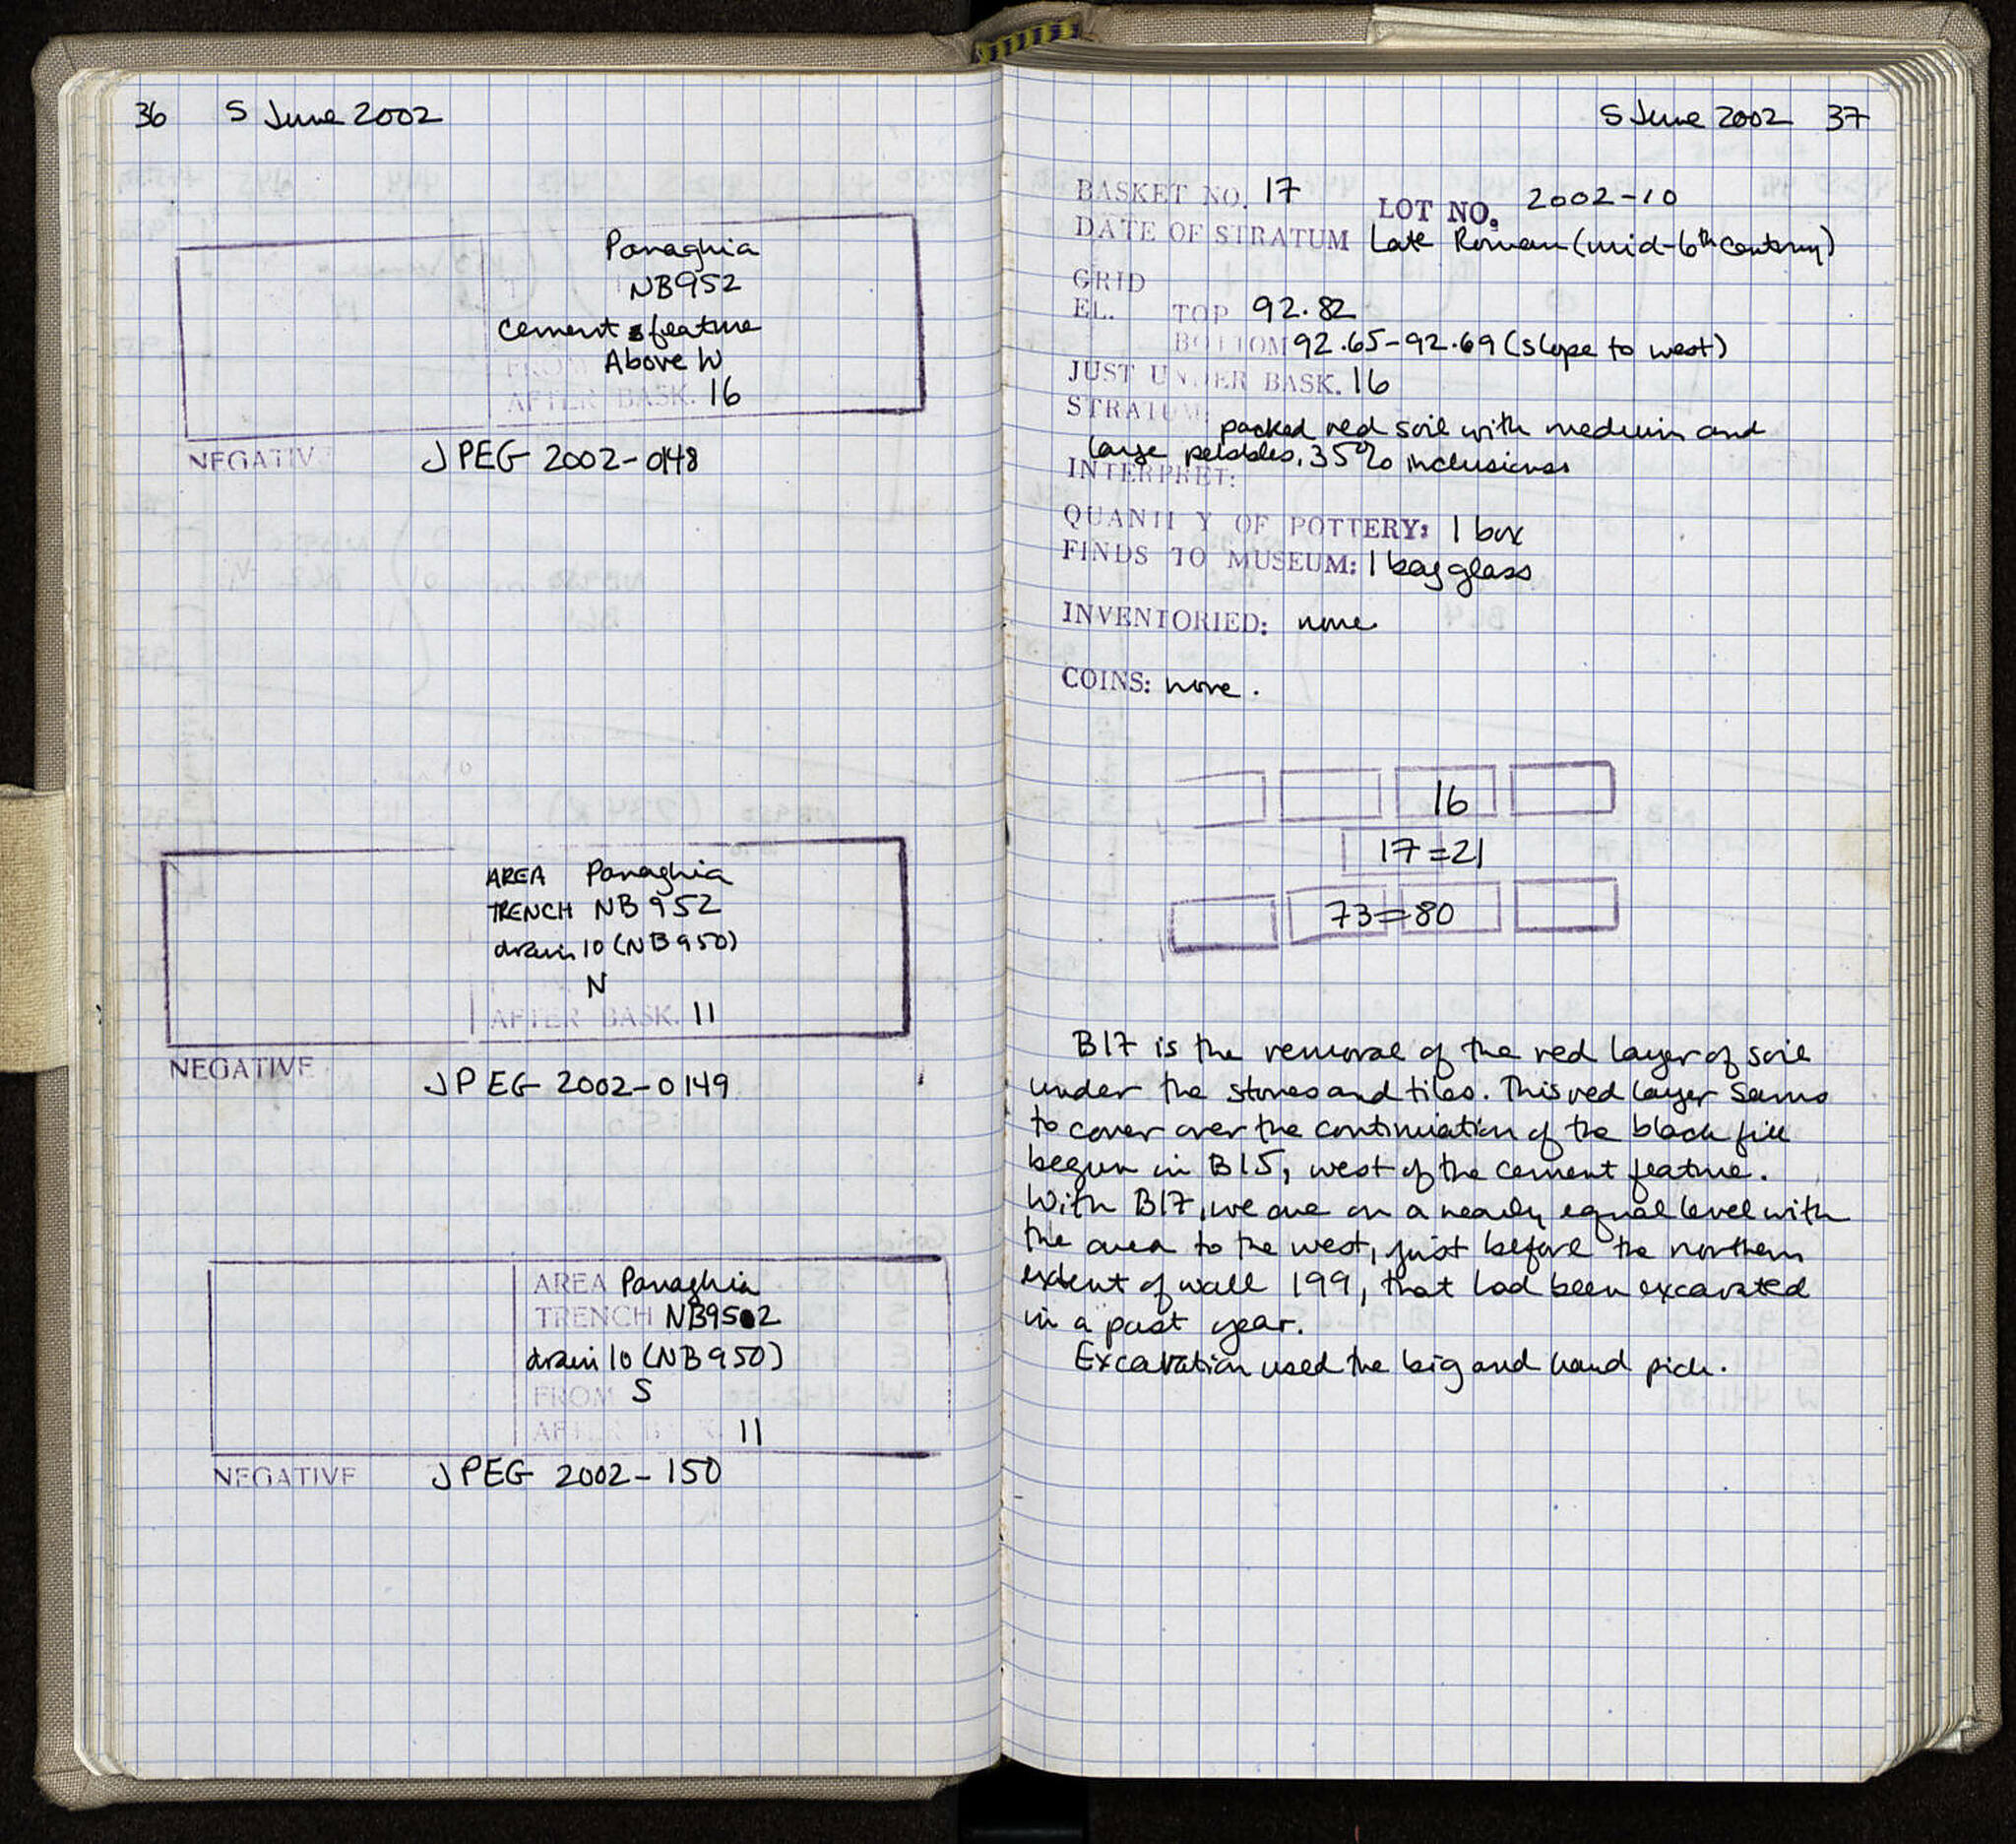 36 5 June 2002
Panaghia
NB952
cement feature
FROM Above W
AFTER BASK. 16
NEGATIV
JPEG 2002-0148
AREA Panaghia
TRENCH NB 952
drain 10 (NB950)
N
AFTER BASK. 11
NEGATIVE
JPEG 2002-0149
AREA Panaghia
TRENCH NB952
drain 10 (NB950)
FROM S
AFTER 11
NEGATIVE JPEG 2002-150
5 June 2002 37
BASKET NO. 17 LOT NO. 2002-10
DATE OF STRATUM Late Roman (mid-6th century)
GRID
EL. TOP 92.82
BOTTOM 92.65-92.69 (slope to west)
JUST UNDER BASK. 16
STRATUM: packed red soil with medium and
large pebbles, 35% inclusions
INTERPRET:
QUANTITY OF POTTERY: 1 box
FINDS TO MUSEUM: 1 bag glass
INVENTORIED: none
COINS: none.
16
17=21
73=80
B17 is the removal of the red layer of soil
under the stones and tiles. This red layer seems
to cover over the continuation of the black fill
begun in B15, west of the cement feature.
With B17, we are on a nearly equal level with
the area to the west, just before the northern
extent of wall 199, that had been excavated
in a past year.
Excavation used the big and hand pick.